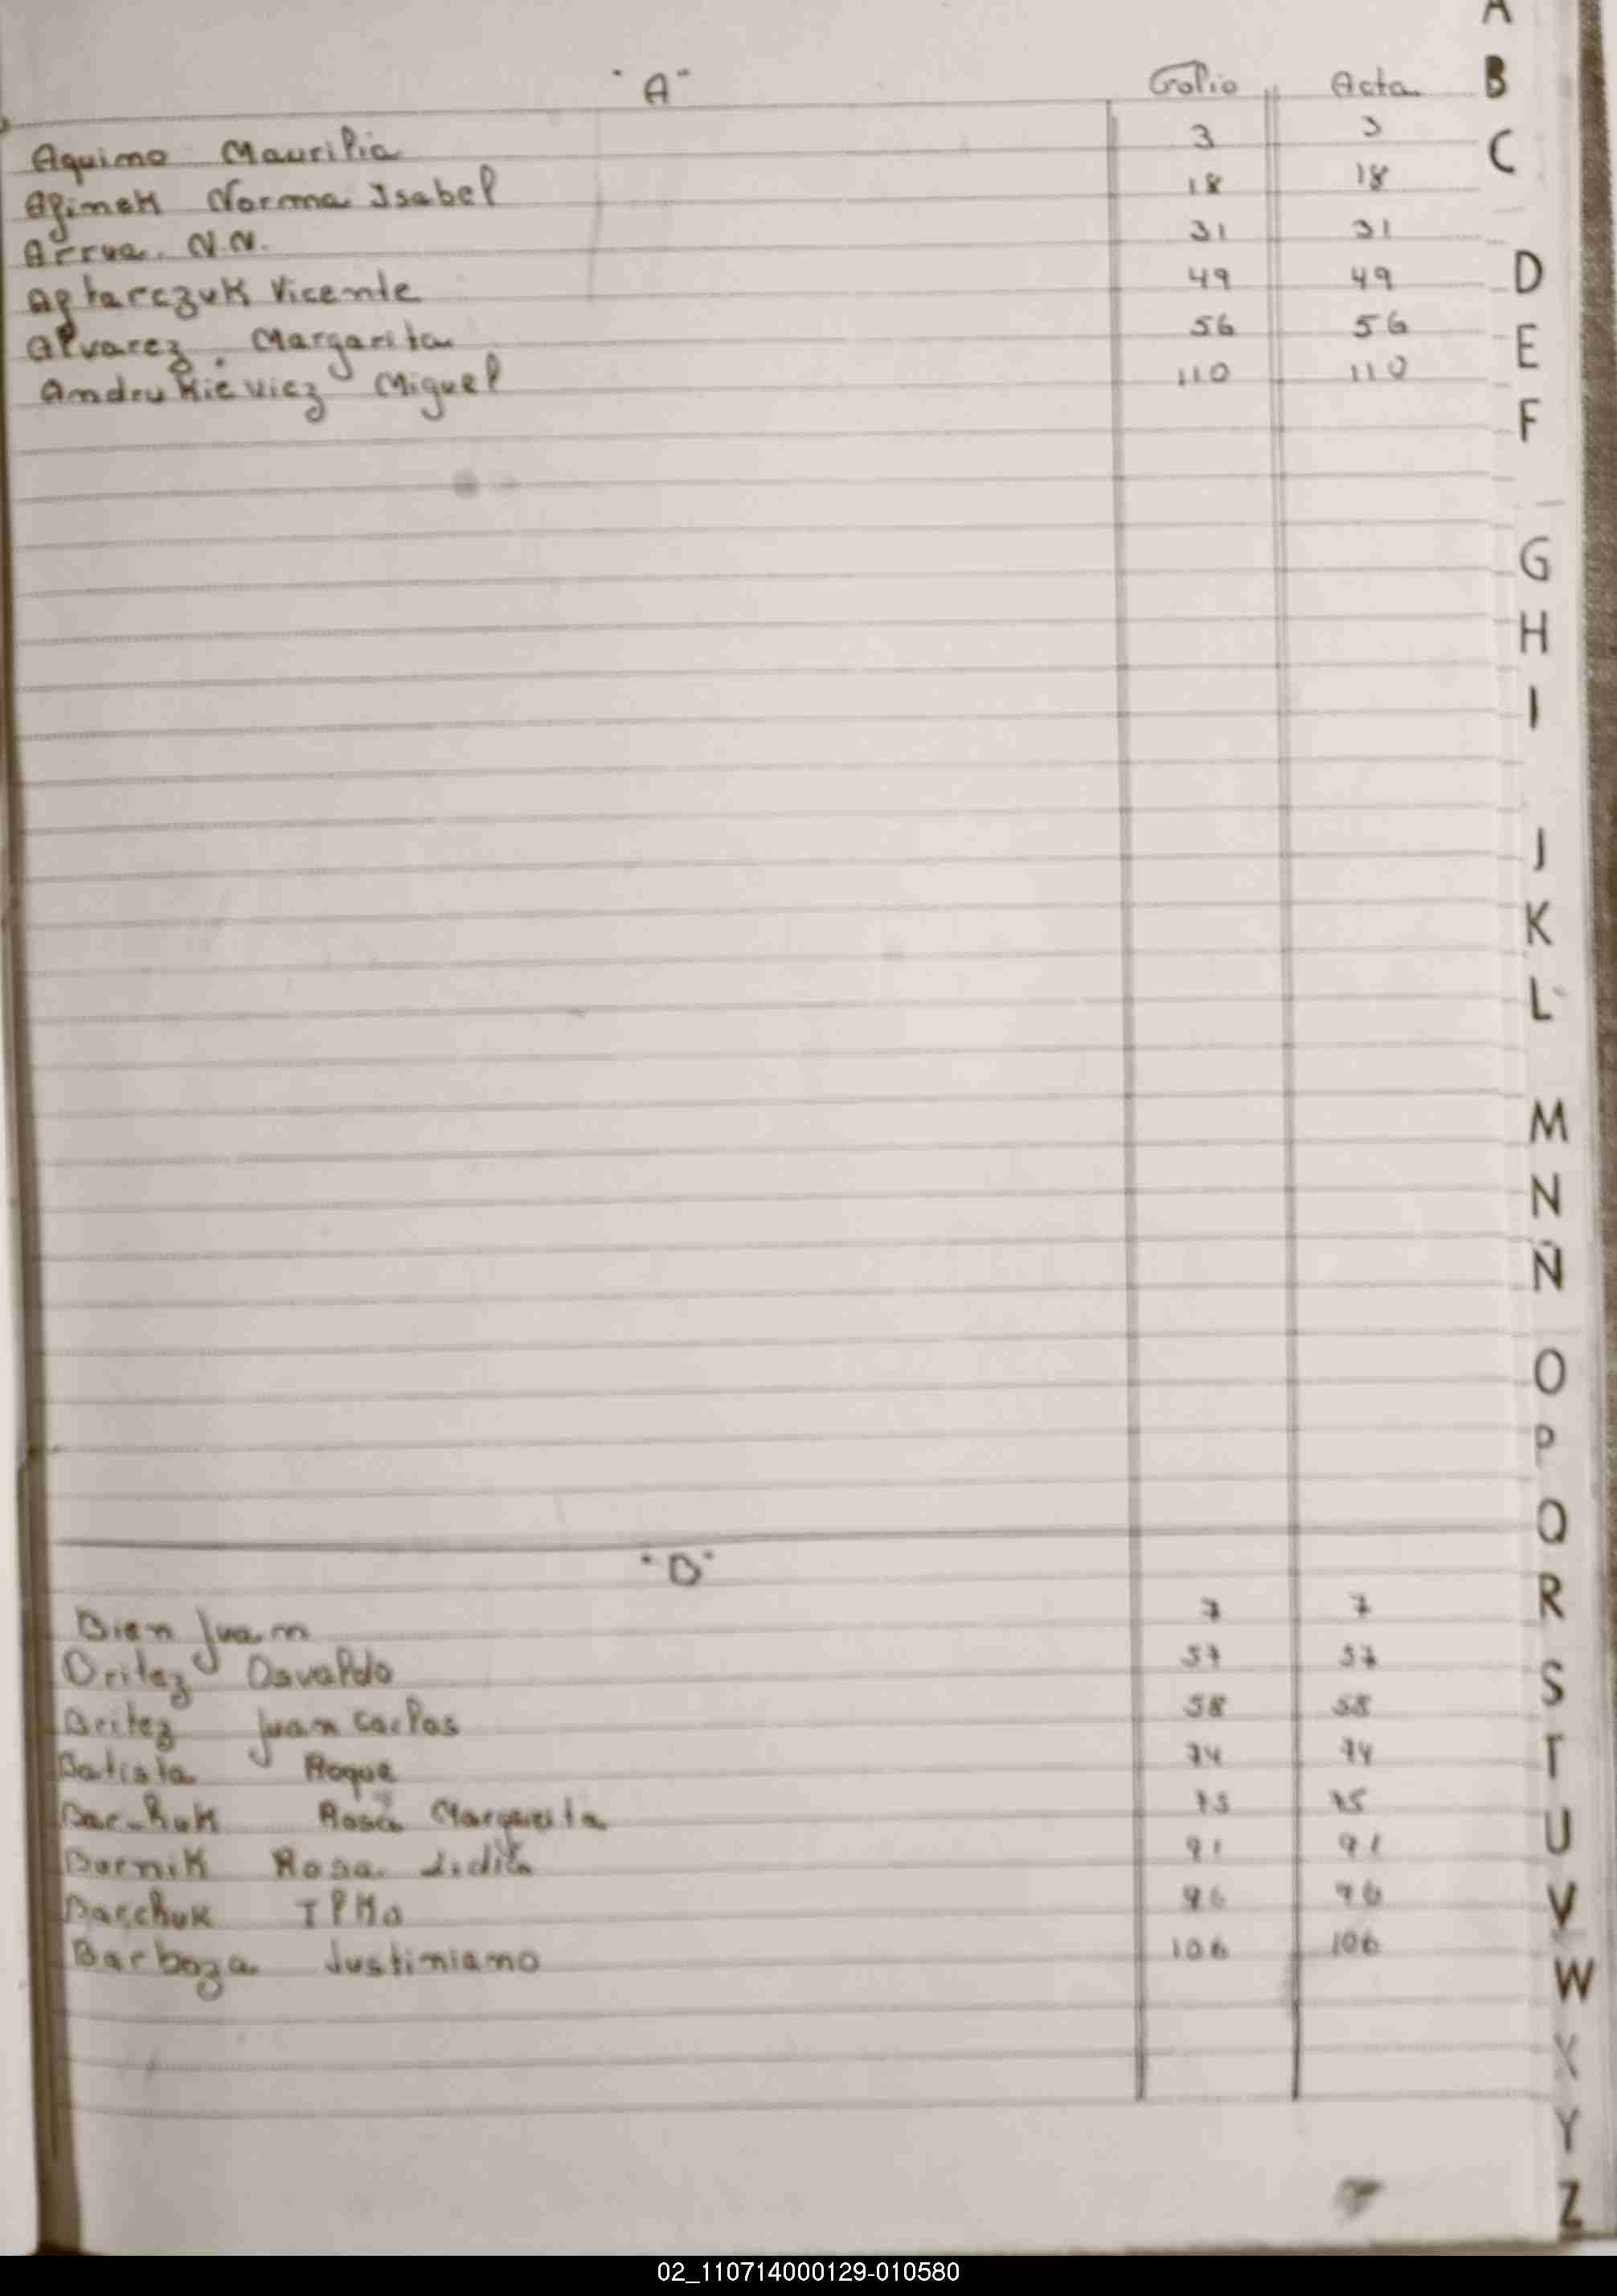 "A" Folio Acta
Aquino Maurilia 3 3
Norma Isabel 18 18
Arrua. N.N. 31 31
Vicente 49 49
Alvarez. Margarita 56 56
Andrukievicz Miguel 110 110
"B"
Bien Juan 7 7
Britez Osvaldo 57 57
Britez Juan Carlos 58 58
Batista Roque 74 74
Rosa Margarita 75 75
Burnik Rosa 91 91
Barchuk 96 96
Barboza Justiniano 106 106
A
B
C
D
E
F
G
H
I
J
K
L
M
N
Ñ
O
P
Q
R
S
T
U
V
W
X
Y
Z
02_110714000129-010580